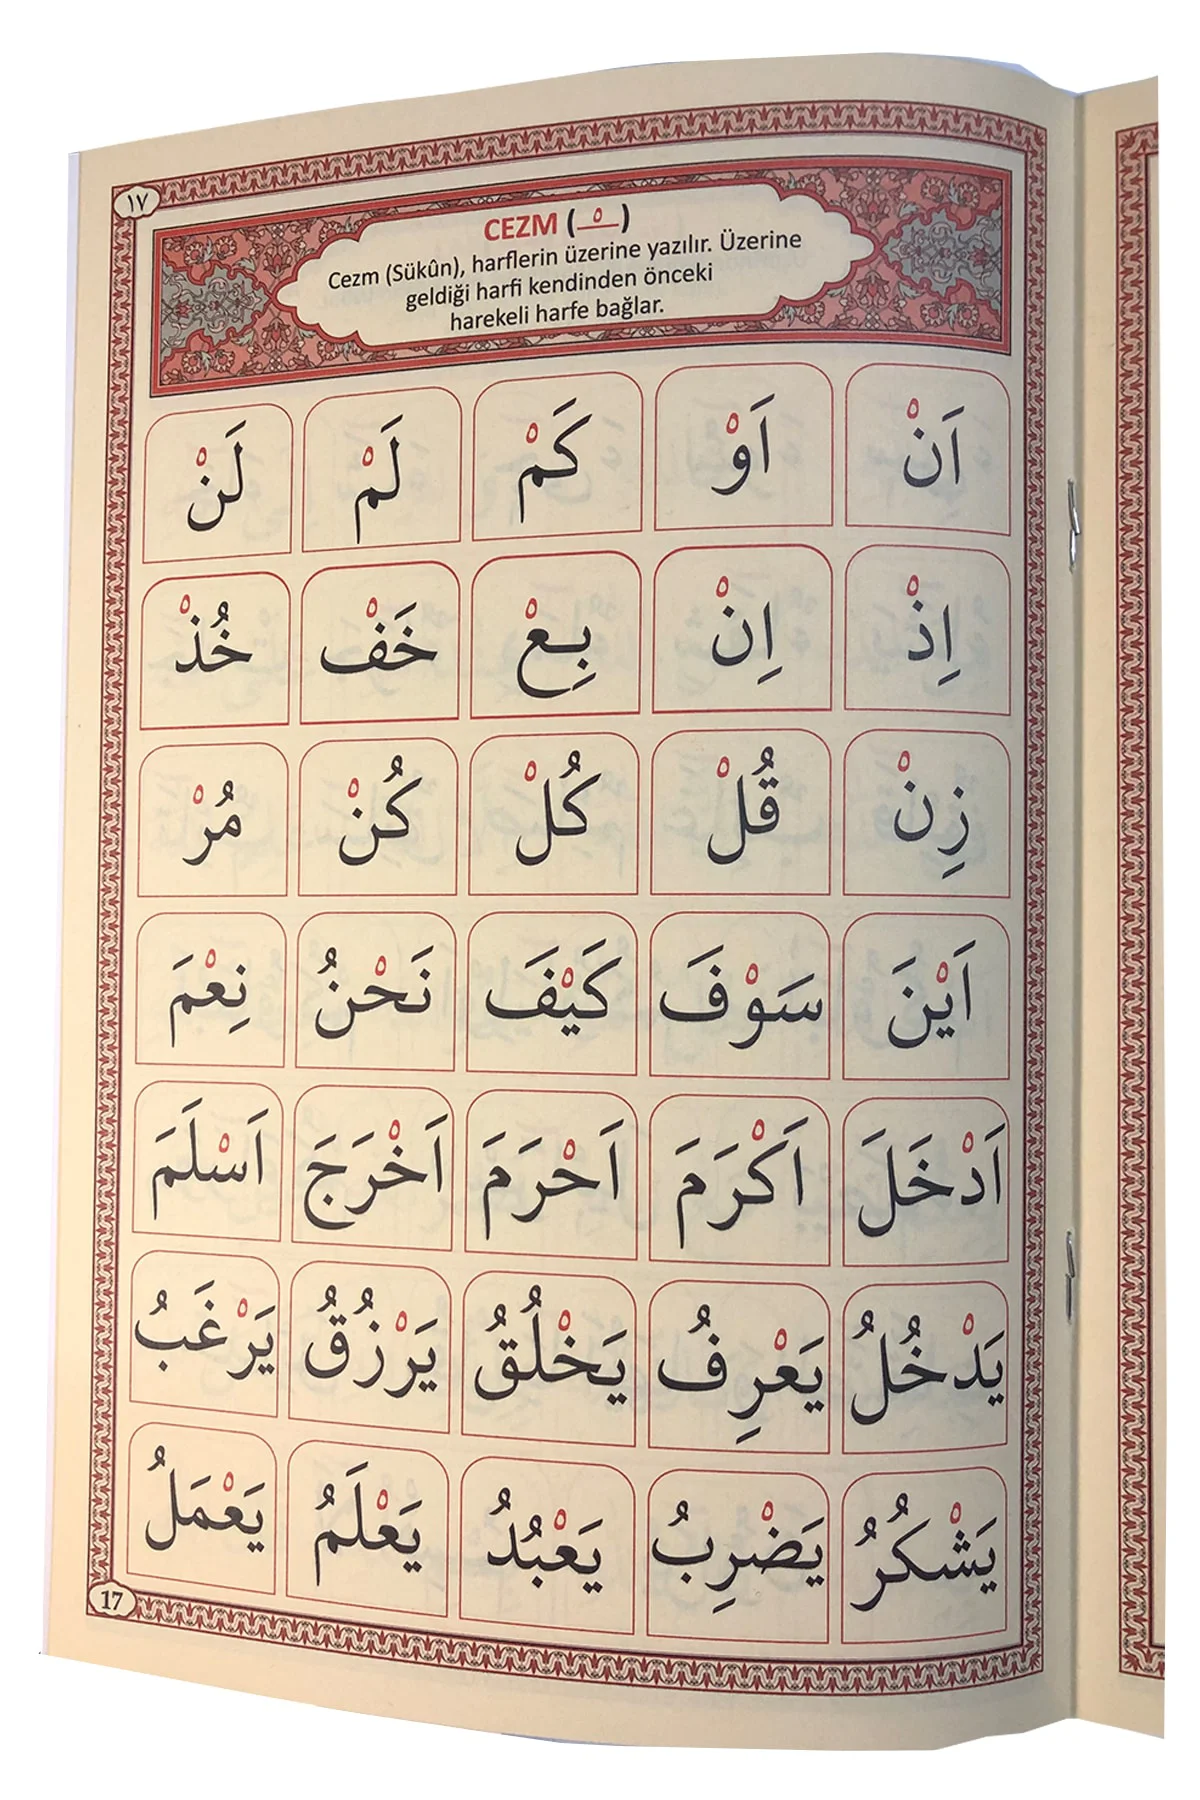 ١٧
CEZM ( ْ )
Cezm (Sükûn), harflerin üzerine yazılır. Üzerine
geldiği harfi kendinden önceki
harekeli harfe bağlar.
اَنْ اَوْ كَمْ لَمْ لَنْ
اِذْ اِنْ بِعْ خَفْ خُذْ
زِنْ قُلْ كُلْ كُنْ مُرْ
اَيْنَ سَوْفَ كَيْفَ نَحْنُ نِعْمَ
اَدْخَلَ اَكْرَمَ اَحْرَمَ اَخْرَجَ اَسْلَمَ
يَدْخُلُ يَعْرِفُ يَخْلُقُ يَرْزُقُ يَرْغَبُ
يَشْكُرُ يَضْرِبُ يَعْبُدُ يَعْلَمُ يَعْمَلُ
17